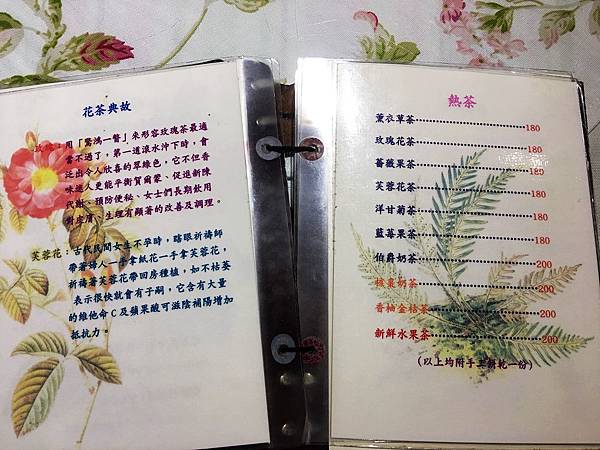 花茶典故
玫瑰：用「驚鴻一瞥」來形容玫瑰茶最適
當不過了，第一道滾水沖下時，會
泛出令人欣喜的翠綠色，它不但香
味迷人更能平衡賀爾蒙、促進新陳
代謝、預防便秘、女士們長期飲用
對皮膚、生理有顯著的改善及調理。
芙蓉花：古代民間女生不孕時，瞎眼祈禱師
帶著婦人一手拿紙花一手拿芙蓉花，
祈禱著芙蓉花帶回房種植，如不枯萎
表示很快就會有子嗣，它含有大量
的維他命C及蘋果酸可滋陰補陽增加
抵抗力。
熱茶
薰衣草茶 180
玫瑰花茶 180
薔薇果茶 180
芙蓉花茶 180
洋甘菊茶 180
藍莓果茶 180
伯爵奶茶 200
核棗奶茶 200
香柚金桔茶 200
新鮮水果茶 200
(以上均附手工餅乾一份)